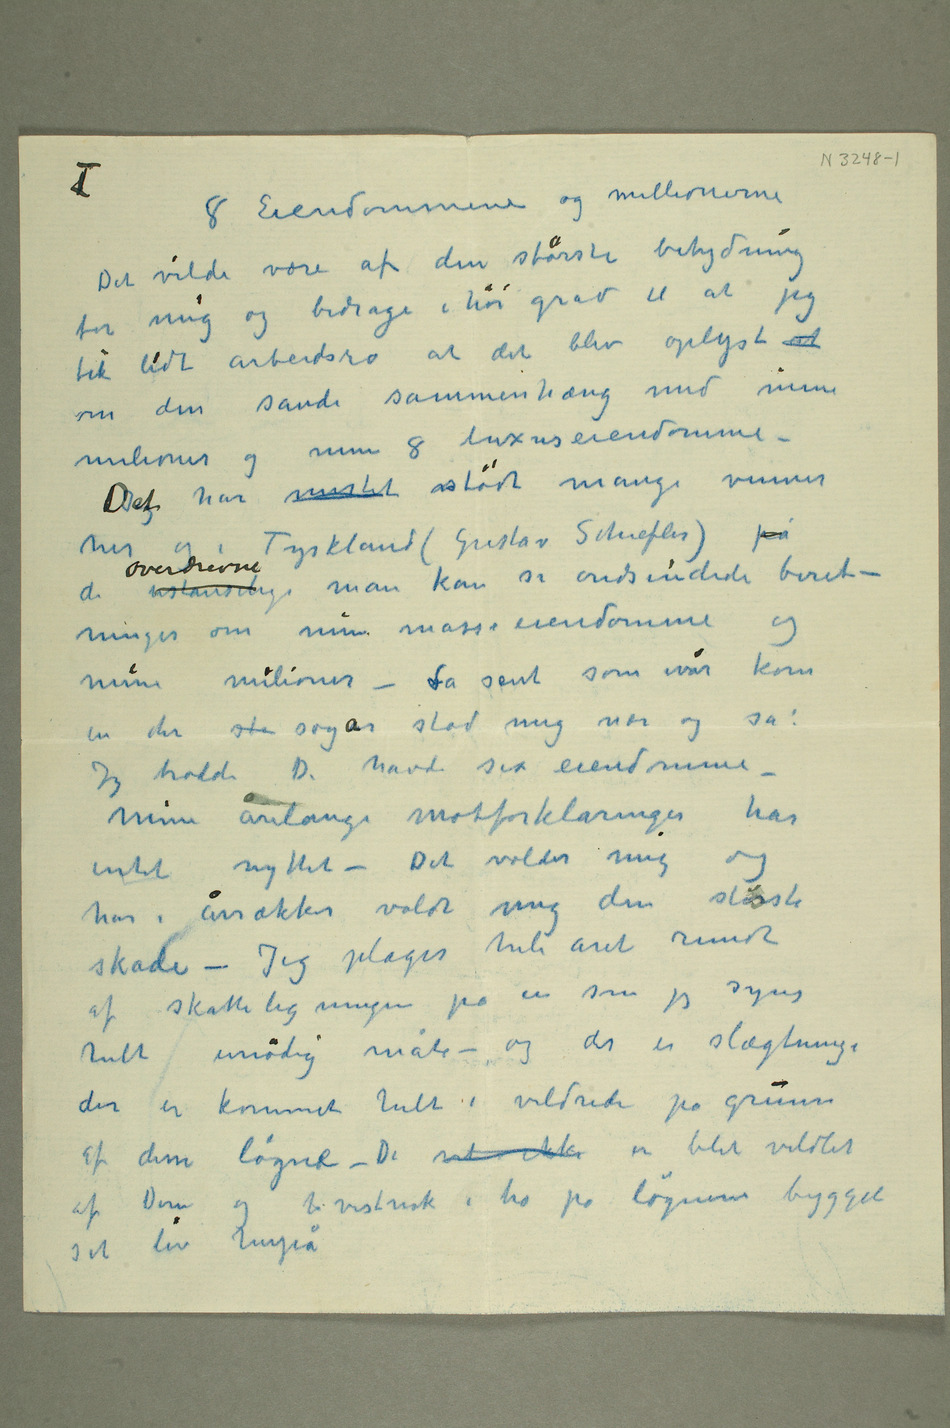 I
N 3248-1
8 Eiendommene og millionerne
Det vilde være af den største betydning
for mig og bidrage i høi grad til at jeg
fik lidt arbeidsro at det blev oplyst at
om den sande sammenhæng med mine
milioner og mine 8 luxuseiendomme –
Det har mistet stødt mange venner
her og i Tyskland (Gustav Schiefler) på
overdrevne
de man kan si ondsindede beret–
ninger om mine masseeiendomme og
mine milioner – Så sent som ivår kom
en der sogar stod mig nær og sa:
Jeg trode De havde sex eiendomme –
Mine årelange motforklaringer har
intet nyttet – Det volder mig og
har i årrækker voldt mig den største
skade – Jeg plages hele året rundt
af skatteligningen på en som jeg synes
helt unødig måte – og der er slægtninge
der er kommet helt i vildrede på grunn
af disse løgne – De er blet vildlet
af Dem og i tro på løgnene bygget
sit liv herpå